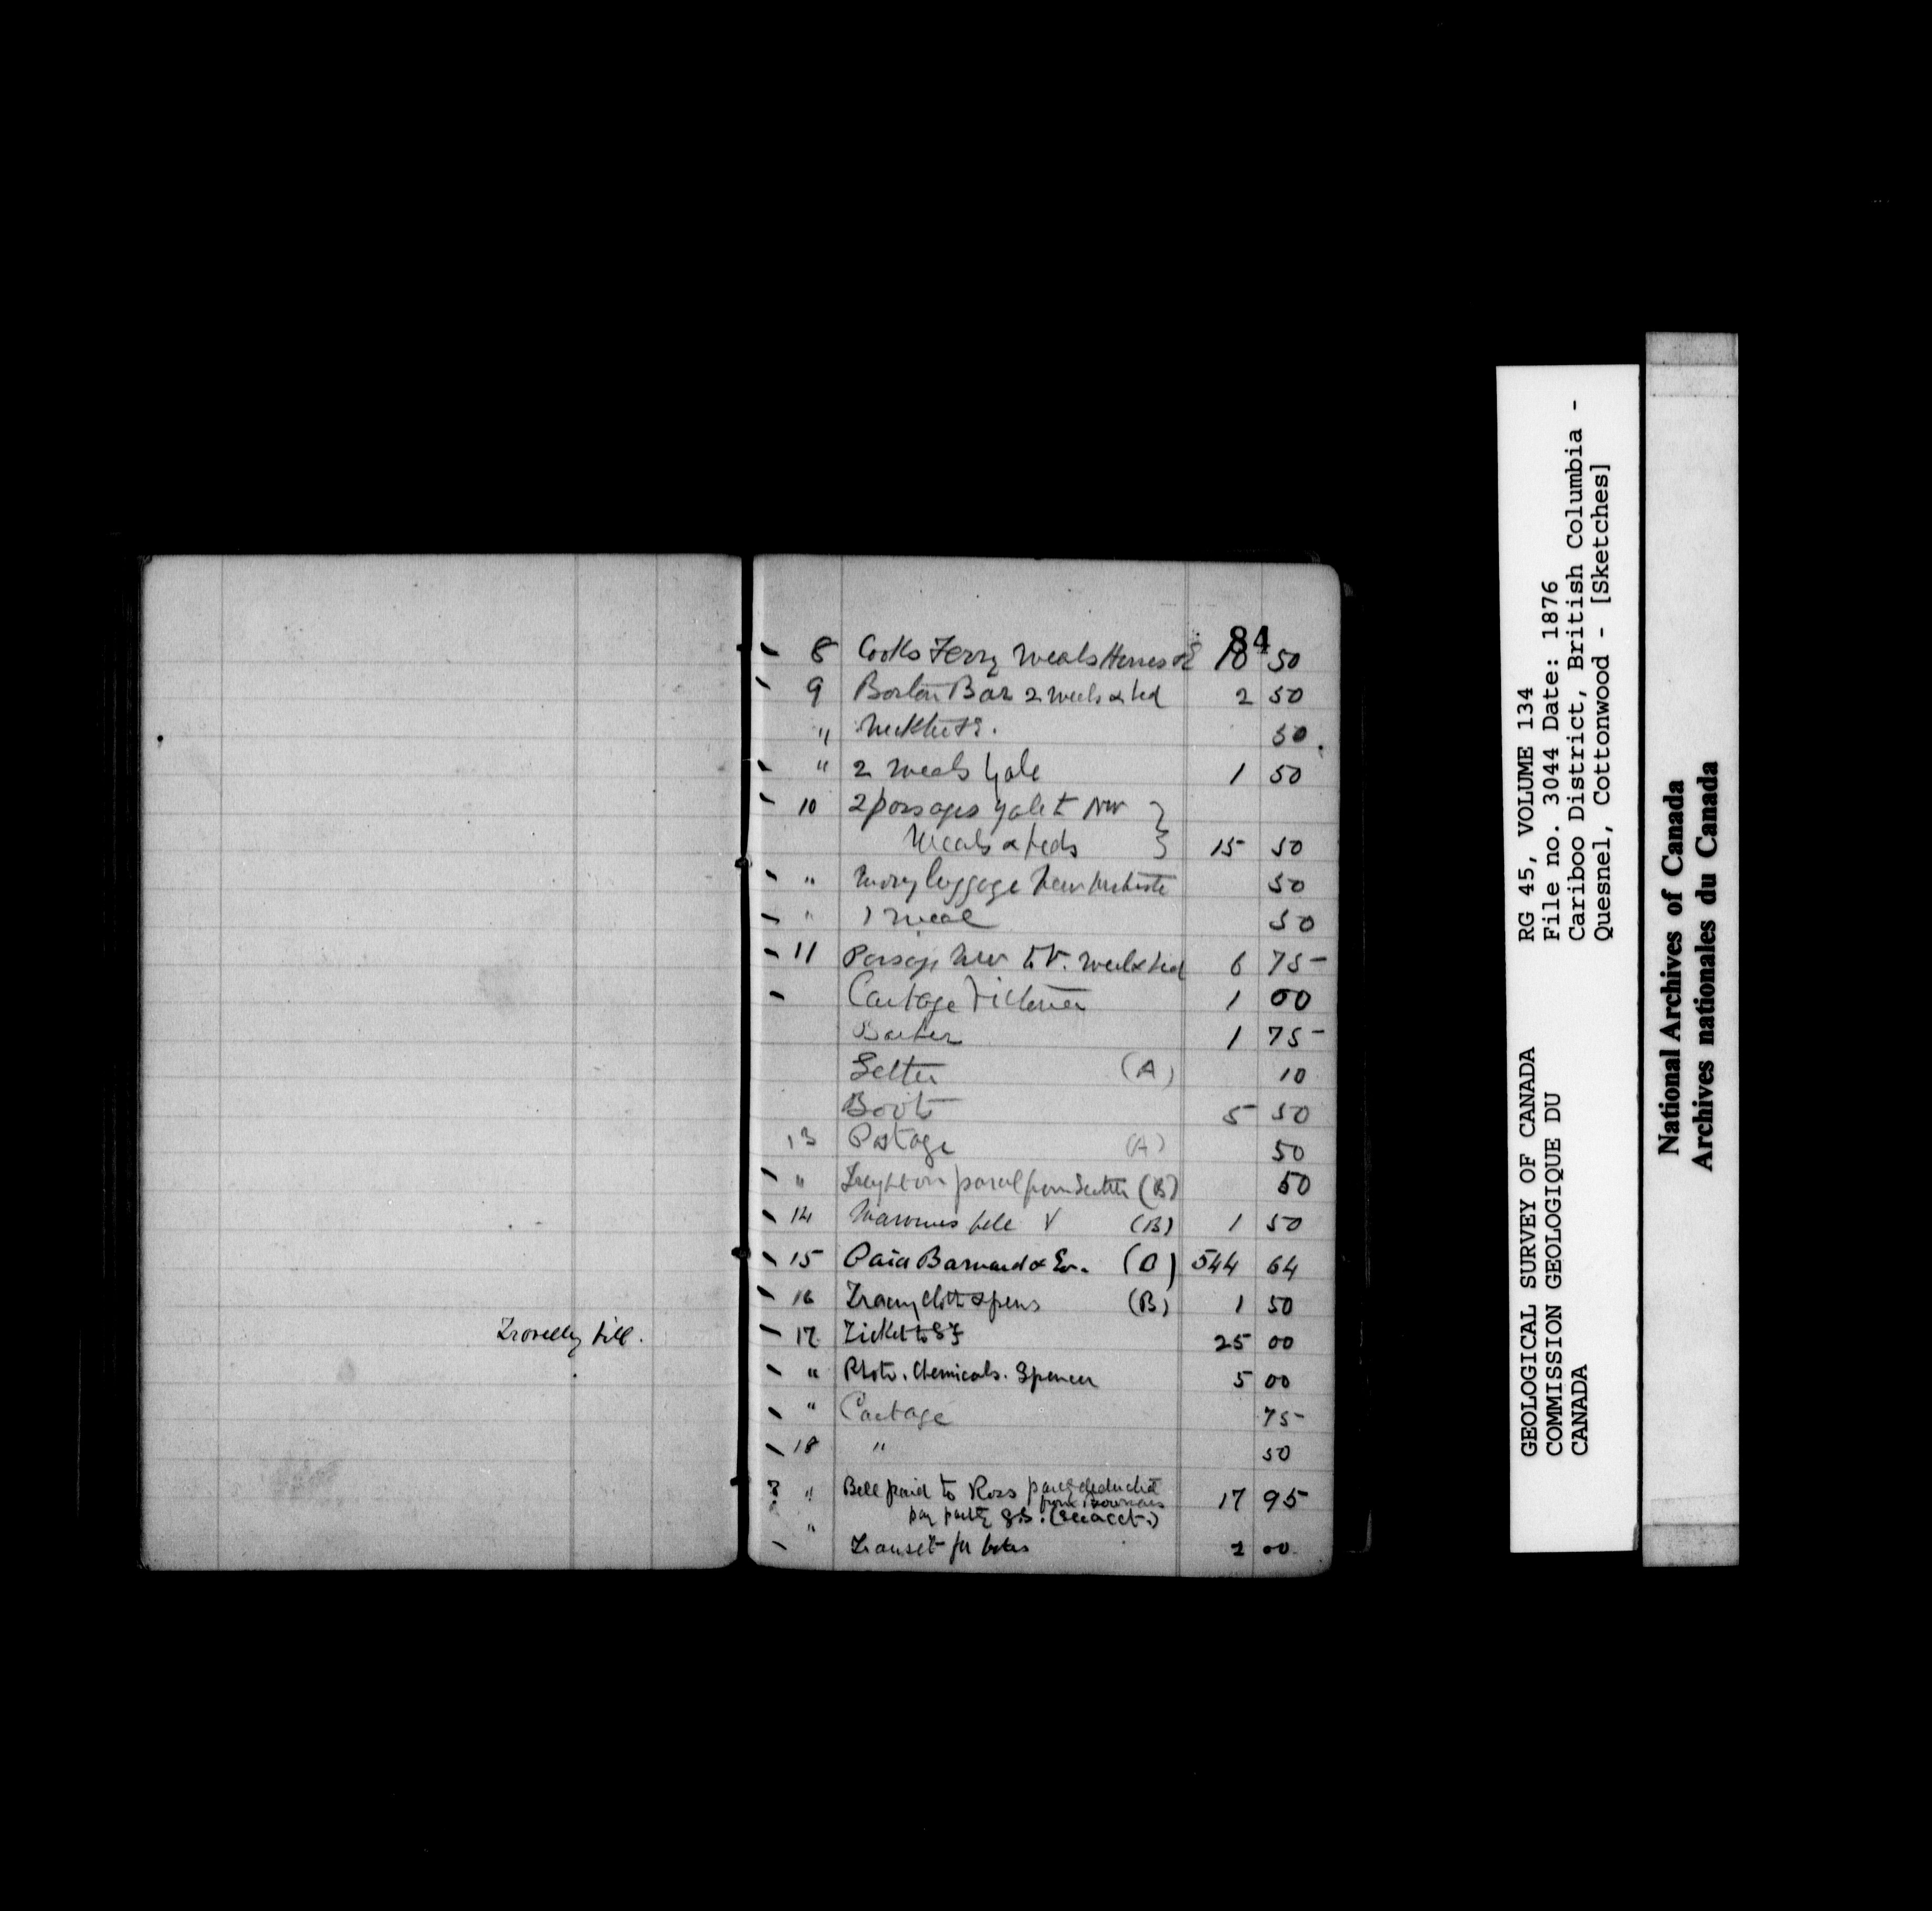 Travellg bill.
84
8 Cooks Ferry Meals Horses &c 10 50
9 Boston Bar 2 meals & bed 2 50
" Necktie &c. 50
" 2 meals Yale 1 50
10 2 passages Yale to NW
Meals & beds } 15 50
" Moving luggage New 50
" 1 meal 50
11 Passage New to V. meal & bed 6 75
Cartage Victoria 1 00
Barber 1 75
Letter (A) 10
Boots 5 50
13 Postage (A) 50
" Freight on parcel from (B) 50
14 bill V (B) 1 50
15 Paid Barnard & Co. (B) 544 64
16 Tracing cloth & pens (B) 1 50
17 Ticket to SF 25 00
" Photo. Chemicals. Spencer 5 00
" Cartage 75
18 " 50
? " Bill paid to Ross partly deducted
from
pay partly GS. (see acct.) 17 95
"
for boxes 2 00
GEOLOGICAL SURVEY OF CANADA
COMMISSION GEOLOGIQUE DU
CANADA
RG 45, VOLUME 134
File no. 3044 Date: 1876
Cariboo District, British Columbia -
Quesnel, Cottonwood - [Sketches]
National Archives of Canada
Archives nationales du Canada